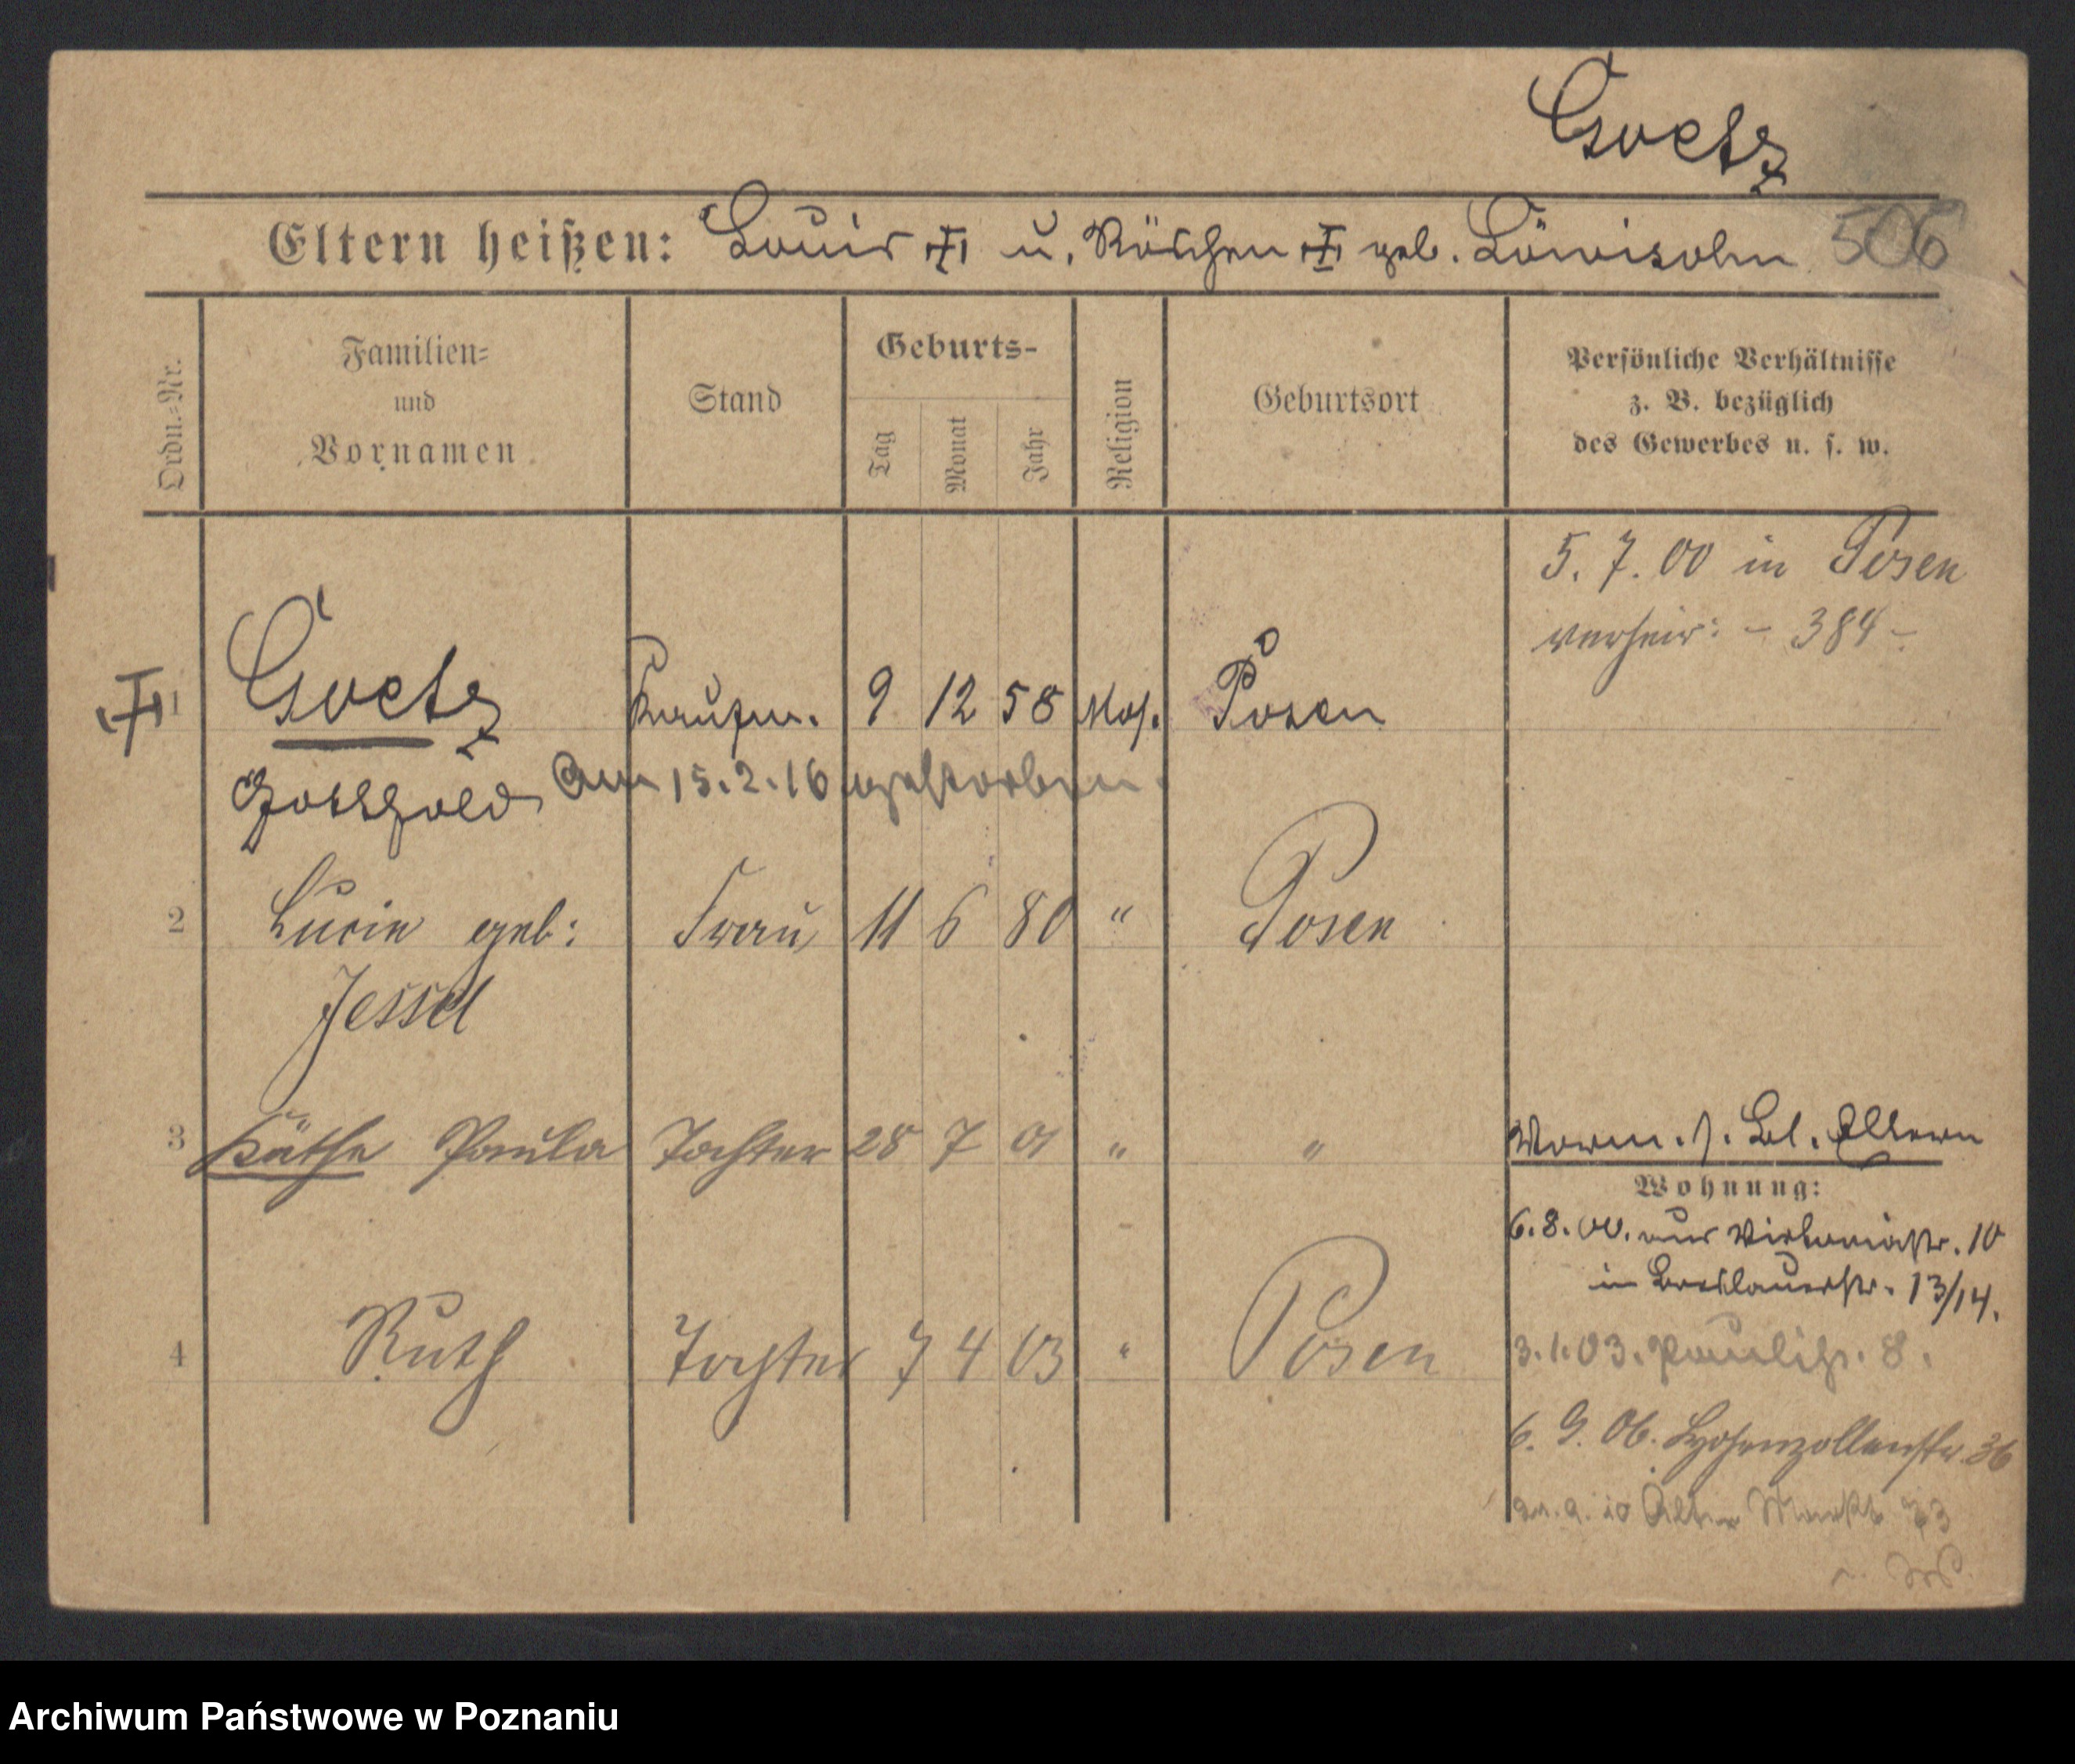 Goetz
Eltern heißen: Louis u. Röschen geb. Löwisohn 506
Ordn.=Nr.
Familien=
und
Vornamen
Stand
Geburts-
Tag
Monat
Jahr
Religion
Geburtsort
Persönliche Verhältnisse
z. B. bezüglich
des Gewerbes u. s. w.
5. 7. 00 in Posen
verheir: - 384 -
1 Goetz Kaufm. 9 12 58 Mos. Posen
Gotthold Am 15.2.16 gestorben.
2 Lucie geb: Frau 11 6 80 " Posen
Jessel
3 Käthe Paula Tochter 28 7 01 " " Worm. s. Bl. Eltern
Wohnung:
6.8.00. aus Viktoriastr. 10
in Breslauerstr. 13/14.
4 Ruth Tochter 7 4 03 " Posen
3.1.03. Paulistr. 8.
6. 9. 06. Hohenzollernstr. 36
10 Alter Markt 73
Archiwum Państwowe w Poznaniu